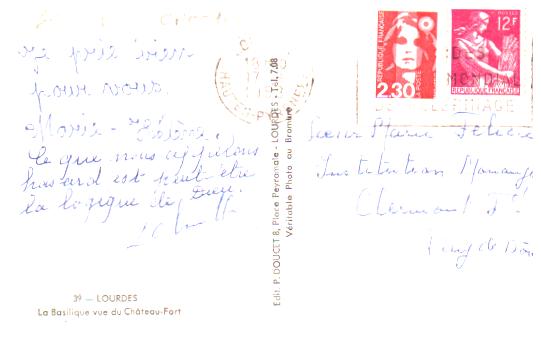 je prie bien
pour vous.
Marie-Hélène.
Ce que nous appelons
hasard est peut être
la logique de Dieu.
39 — LOURDES
La Basilique vue du Château-Fort
Edit. P. DOUCET 8, Place Peyramale - LOURDES - Tél. 7.08
Véritable Photo au Bromure
REPUBLIQUE FRANÇAISE
2.30
POSTES
12F
REPUBLIQUE FRANÇAISE
DES
MONDIAL
PELERINAGE
Soeur Marie
Institution
Clermont Fd
Puy de Dôme